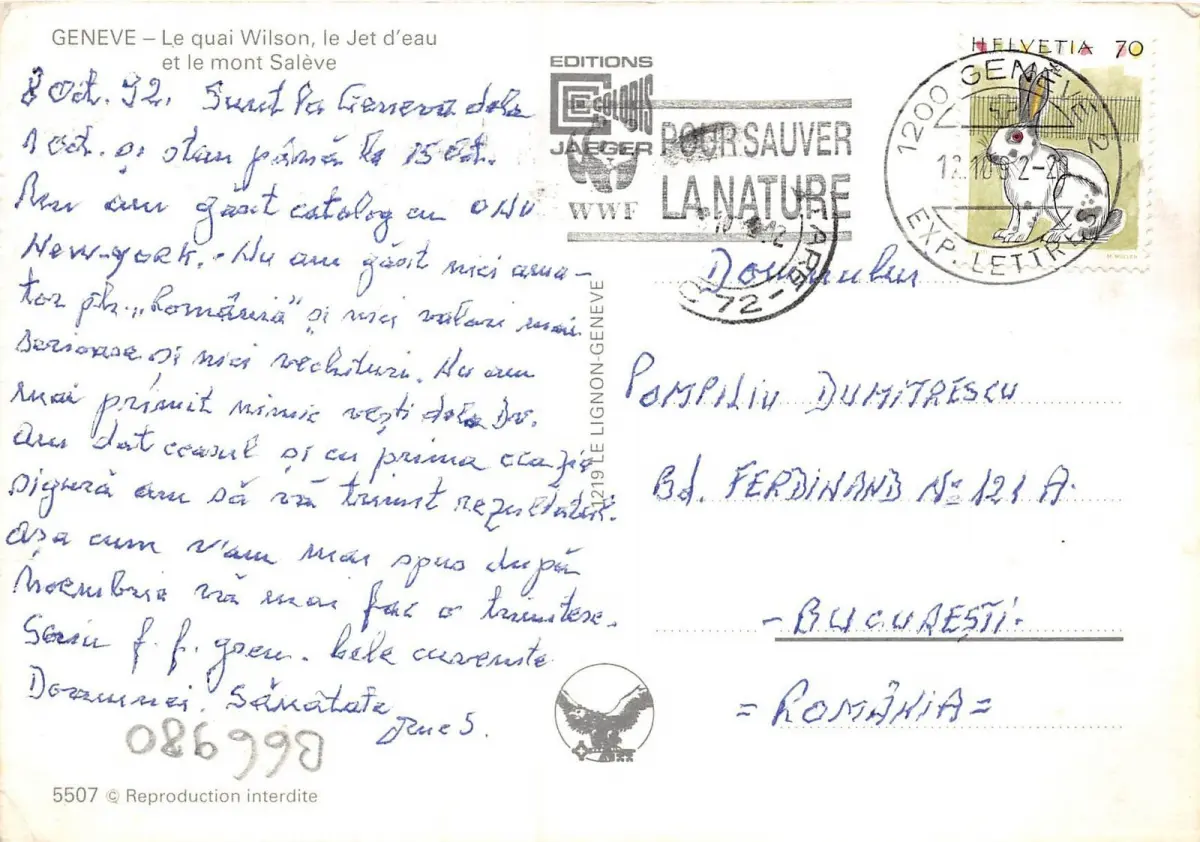 GENEVE – Le quai Wilson, le Jet d'eau
et le mont Salève
8 Oct. 92. Sunt la Geneva dela
1 Oct. și stau până la 15 Oct.
Nu am găsit catalog cu ONU
New-York. Nu am găsit nici ama-
tor pt. „România" și nici valori mai
serioase și nici vechituri. Nu am
mai primit nimic vești dela Dv.
Am dat ceasul și cu prima ocazie
sigură am să vă trimit rezultatul.
Așa cum v'am mai spus după
Noembrie vă mai fac o trimitere.
Scriu f. f. greu. Cele cuvenite
Doamnei. Sănătate
086990
5507 © Reproduction interdite
EDITIONS
JAEGER
WWF
POUR SAUVER
LA NATURE
1219 LE LIGNON-GENEVE
HELVETIA 70
1200 GENÈVE 2
EXP. LETTRES
Domnului
POMPILIU DUMITRESCU
Bd. FERDINAND No 121 A.
- BUCUREȘTI -
= ROMÂNIA =